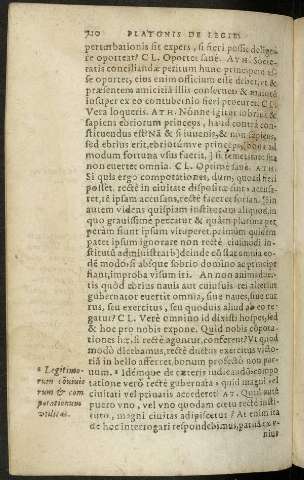 720 PLATONIS DE LEGIB.
perturbationis sit expers, si fieri possit deligere
re oporteat? CL. Oportet sanè. ATH. Socie-
tatis conciliandæ peritum hunc principem es-
se oportet, eius enim officium esse debet, ut &
præsentem amicitiã illis conseruet & maiorẽ
insuper ex eo contubernio fieri procuret. CL.
Vera loqueris. ATH. Nónne igitur sobrius &
sapiens ebriorum princeps, haud contrà con-
stituendus est? Nã & si iuuenis, & non sapiens,
sed ebrius erit, ebriotũmve princeps,
modum fortuna vsus fuerit,
non euertet omnia. CL. Optimè sanè. ATH.
Si quis ergo compotationes, dum, quoad fieri
posset, rectè in ciuitate dispositæ sint accusa-
ret, rẽ ipsam accusans, rectè faceret forsan. Sin
autem videns quispiam institutum aliquod, in
quo grauissimè peccatur & quàm plurima per-
peràm fiunt ipsum vituperet, primùm quidem
patet ipsum ignorare non rectè eiusmodi in-
stitutũ administrari: deinde omnia eo-
dẽ modo, si absque sobrio domino ac principe
fiant, improba visum iri. An non animaduer-
tis quòd ebrius nauis aut cuiusuis rei alterius
gubernator euertit omnia, siue naues, siue cur-
rus, seu exercitus, seu quoduis aliud ab eo re-
gatur? CL. Verè omnino id dixisti hospes, sed
& hoc pro nobis expone. Quid nobis cõpota-
tiones hæ, si rectè aguntur, conferent? Vt quod
modò dicebamus, rectè ductus exercitus victo-
riã in bello afferret, bonum profectò non par-
uum. * Idémque de cæteris iudicandũ: compo-
tatione verò rectè gubernata quid magni vel
ciuitati vel priuatis accederet? AT. Quid autẽ
puero vno, vel vno quodam cœtu rectè insti-
tuto, magni ciuitas adipiscetur? At enim ita
de hoc interrogati respondebimus, parũ
nius
* Legitimo-
rum conuiuio
rum & com
potationum
vtilitas.